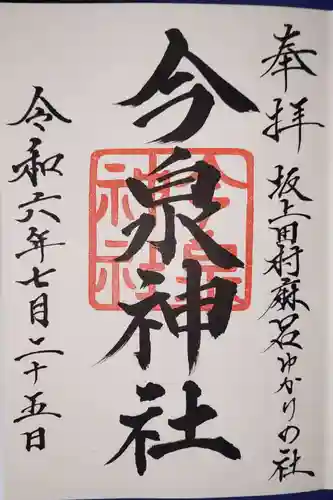 奉拝
坂上田村麻呂ゆかりの社
今泉神社
今泉神社
令和六年七月二十五日